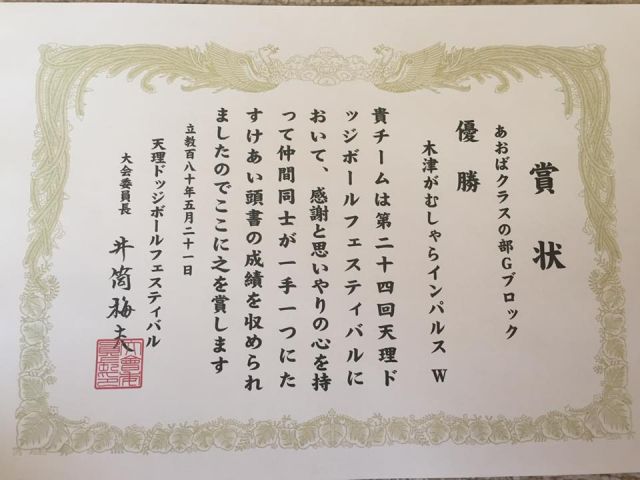 賞状
あおばクラスの部Gブロック
優勝
木津がむしゃらインパルス W
貴チームは第二十四回天理ド
ッジボールフェスティバルに
おいて、感謝と思いやりの心を持
って仲間同士が一手一つにた
すけあい頭書の成績を収められ
ましたのでここに之を賞します
立教百八十年五月二十一日
天理ドッジボールフェスティバル
大会委員長 井筒梅夫